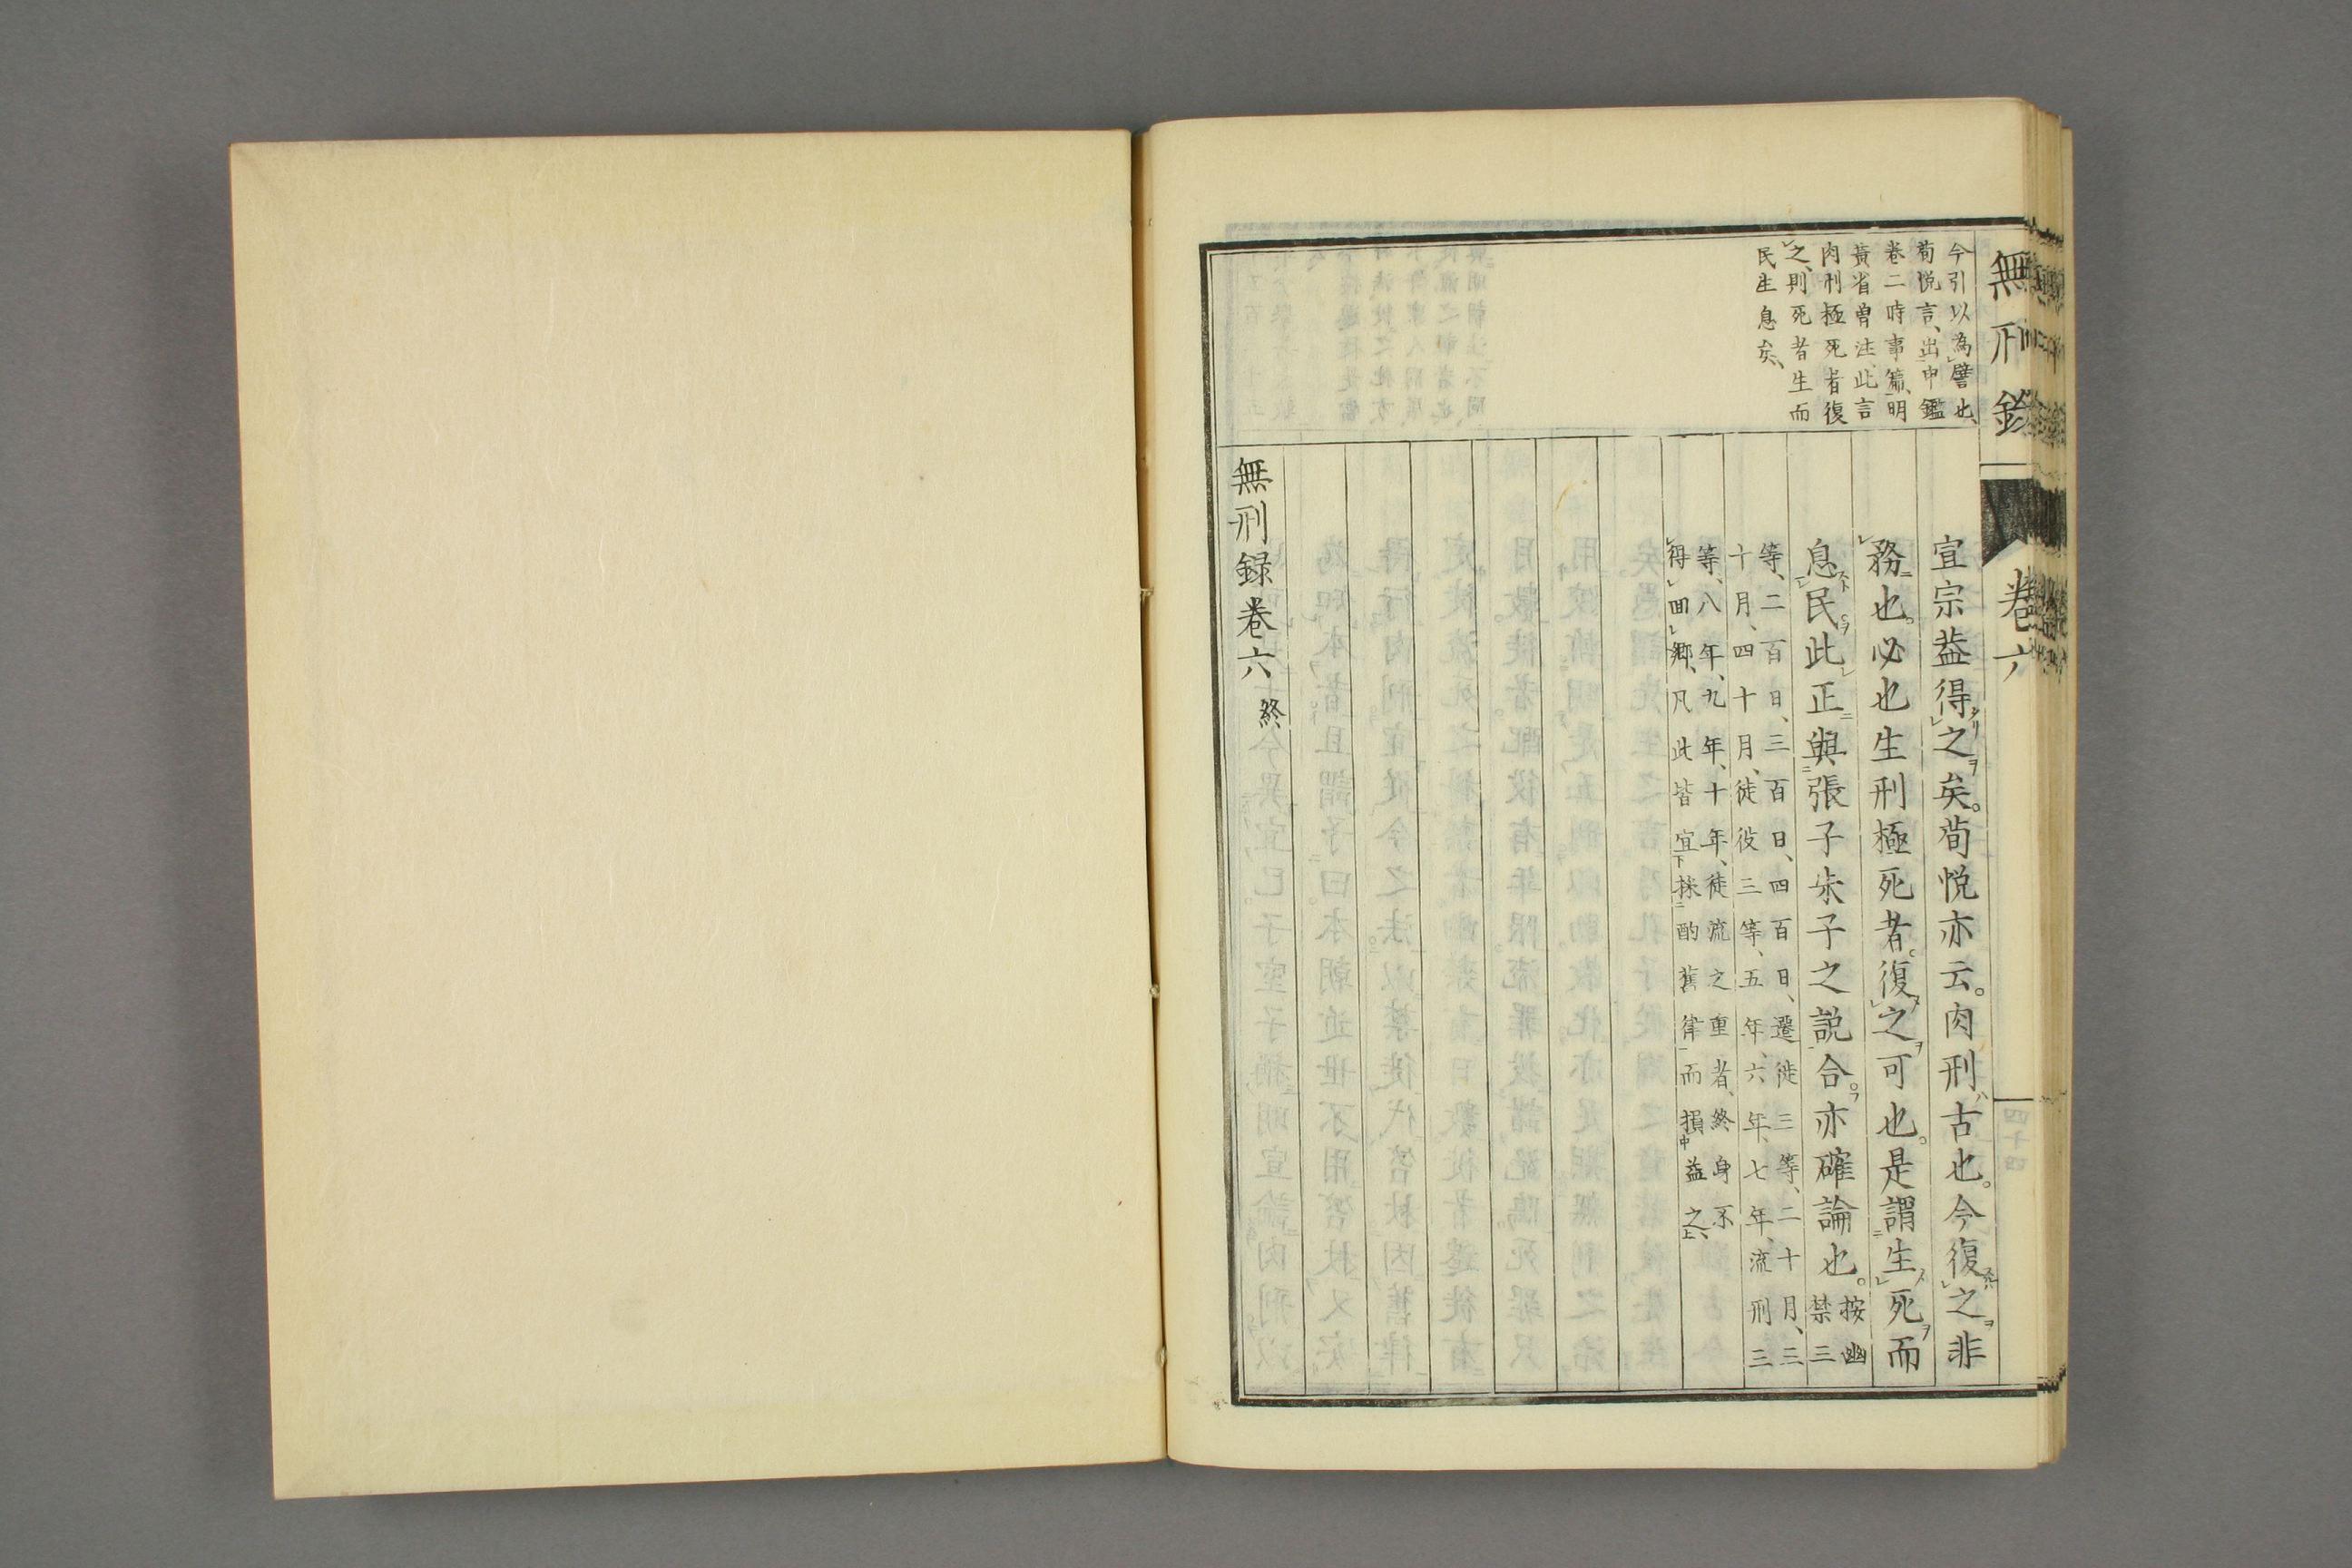 無刑録
卷六
今引以為譬也、
荀悦言、出申鑑
卷二時事篇、明
黄省曽注、此言
肉刑極死者復
之、則死者生而
民生息矣、
宣宗葢得之矣。荀悦亦云。肉刑古也。今復之非
務也。必也生刑極死者。復之可也。是謂生死而
息民。此正與張子朱子之説合。亦確論也。按幽
禁三
等、二百日、三百日、四百日、遷徙三等、二十月、三
十月、四十月、徒役三等、五年六年、七年、流刑三
等、八年、九年、十年、徒流之重者、終身不
得回郷、凡此皆宜採酌舊律而損益之、
無刑録卷六 終